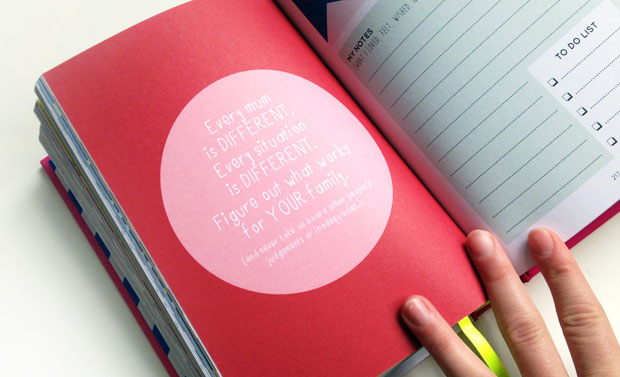 Every mum
is DIFFERENT.
Every situation
is DIFFERENT.
Figure out what works
for YOUR family.
(and never take on board other people's
judgements or inadequacies.)
MY NOTES
WHAT I LOVED, FELT, WISHED,
TO DO LIST
217